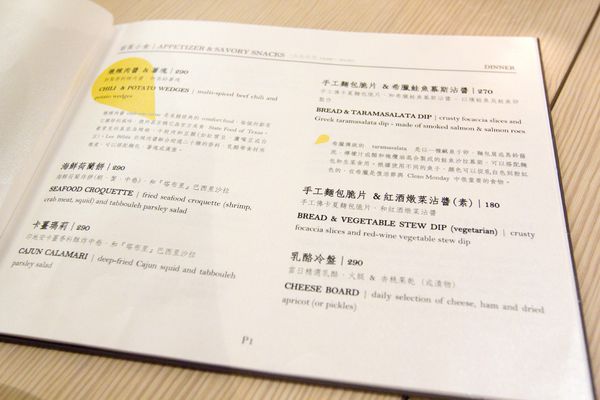 前菜小食 | APPETIZER & SAVORY SNACKS
DINNER
辣肉醬 & 薯塊 | 290
CHILI & POTATO WEDGES | multi-spiced beef chili and
potato wedges
海鮮荷蘭餅 | 190
SEAFOOD CROQUETTE | fried seafood croquette (shrimp,
crab meat, squid) and tabbouleh parsley salad
卡薑瑪莉 | 290
印地安卡薑香料酥炸中卷，和『塔布里』巴西里沙拉
CAJUN CALAMARI | deep-fried Cajun squid and tabbouleh
parsley salad
手工麵包脆片 & 希臘鮭魚慕斯沾醬 | 270
BREAD & TARAMASALATA DIP | crusty focaccia slices and
Greek taramasalata dip - made of smoked salmon & salmon roes
手工麵包脆片 & 紅酒燉菜沾醬(素) | 180
手工佛卡夏麵包脆片，和紅酒燉菜沾醬
BREAD & VEGETABLE STEW DIP (vegetarian) | crusty
focaccia slices and red-wine vegetable stew dip
乳酪冷盤 | 290
當日精選乳酪、火腿 & 杏桃果乾 (或漬物)
CHEESE BOARD | daily selection of cheese, ham and dried
apricot (or pickles)
P1